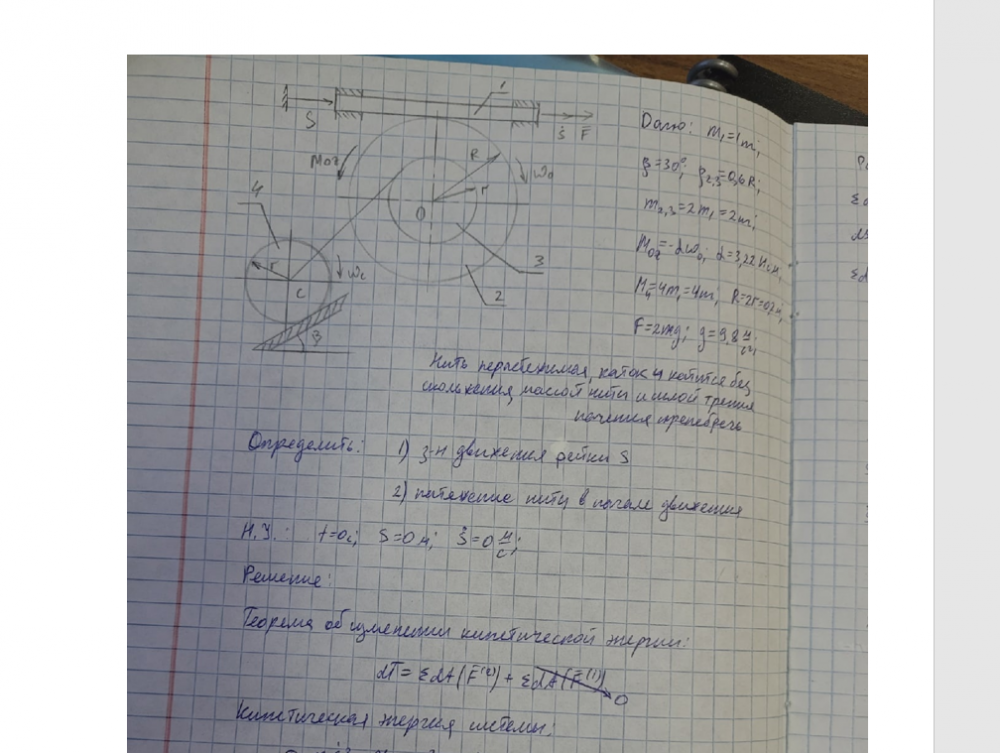 1
S
Ṡ F̄
Дано: m₁=1m;
β=30°; ρ₂,₃=0,6R;
m₂,₃=2m₁=2m;
M₀z=-αω₀; α=3,22 Н·с·м;
M₄=4m₁=4m; R=2r=0,2м;
F=2mg; g=9,8 м/с²;
M₀z
R
r
ω₀
O
4
r
C
ω_c
3
2
β
Нить нерастяжимая, каток 4 катится без
скольжения, массой нити и силой трения
качения пренебречь
Определить: 1) з-н движения рейки S
2) натяжение нити в начале движения
Н.У.: t=0с; S=0м; Ṡ=0 м/с;
Решение:
Теорема об изменении кинетической энергии:
dT = ΣdA(F̄⁽ᵉ⁾) + ΣdA(F̄⁽ⁱ⁾) 0
Кинетическая энергия системы: